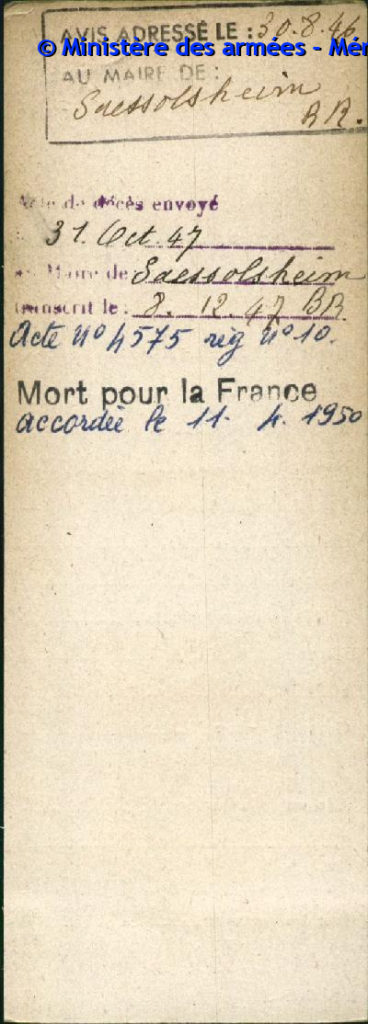 AVIS ADRESSÉ LE : 30.8.46
© Ministère des armées - Mém
AU MAIRE DE :
Saessolsheim
BR.
Acte de décès envoyé
31. Oct. 47
au Maire de Saessolsheim
transcrit le : 8. 12. 47 BR.
Acte n° 4575 rég n° 10.
Mort pour la France
accordée le 11. 4. 1950